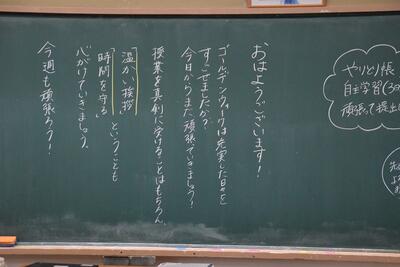 おはようございます！
ゴールデンウィークは充実した日々を
すごせましたか？
今日からまた頑張っていきましょう！
授業を真剣に受けることはもちろん、
「温かい挨拶」
「時間を守る」ということも
心がけていきましょう。
今週も頑張ろう！
やりとり帳
自主学習(3日
頑張って提出
先
よ